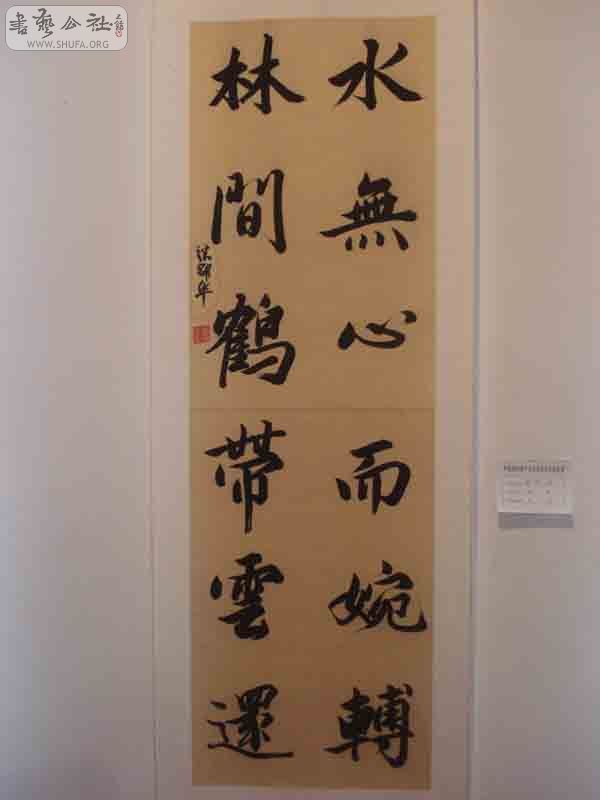 水無心而婉轉
林間鶴帶雲還
書藝公社
WWW.SHUFA.ORG